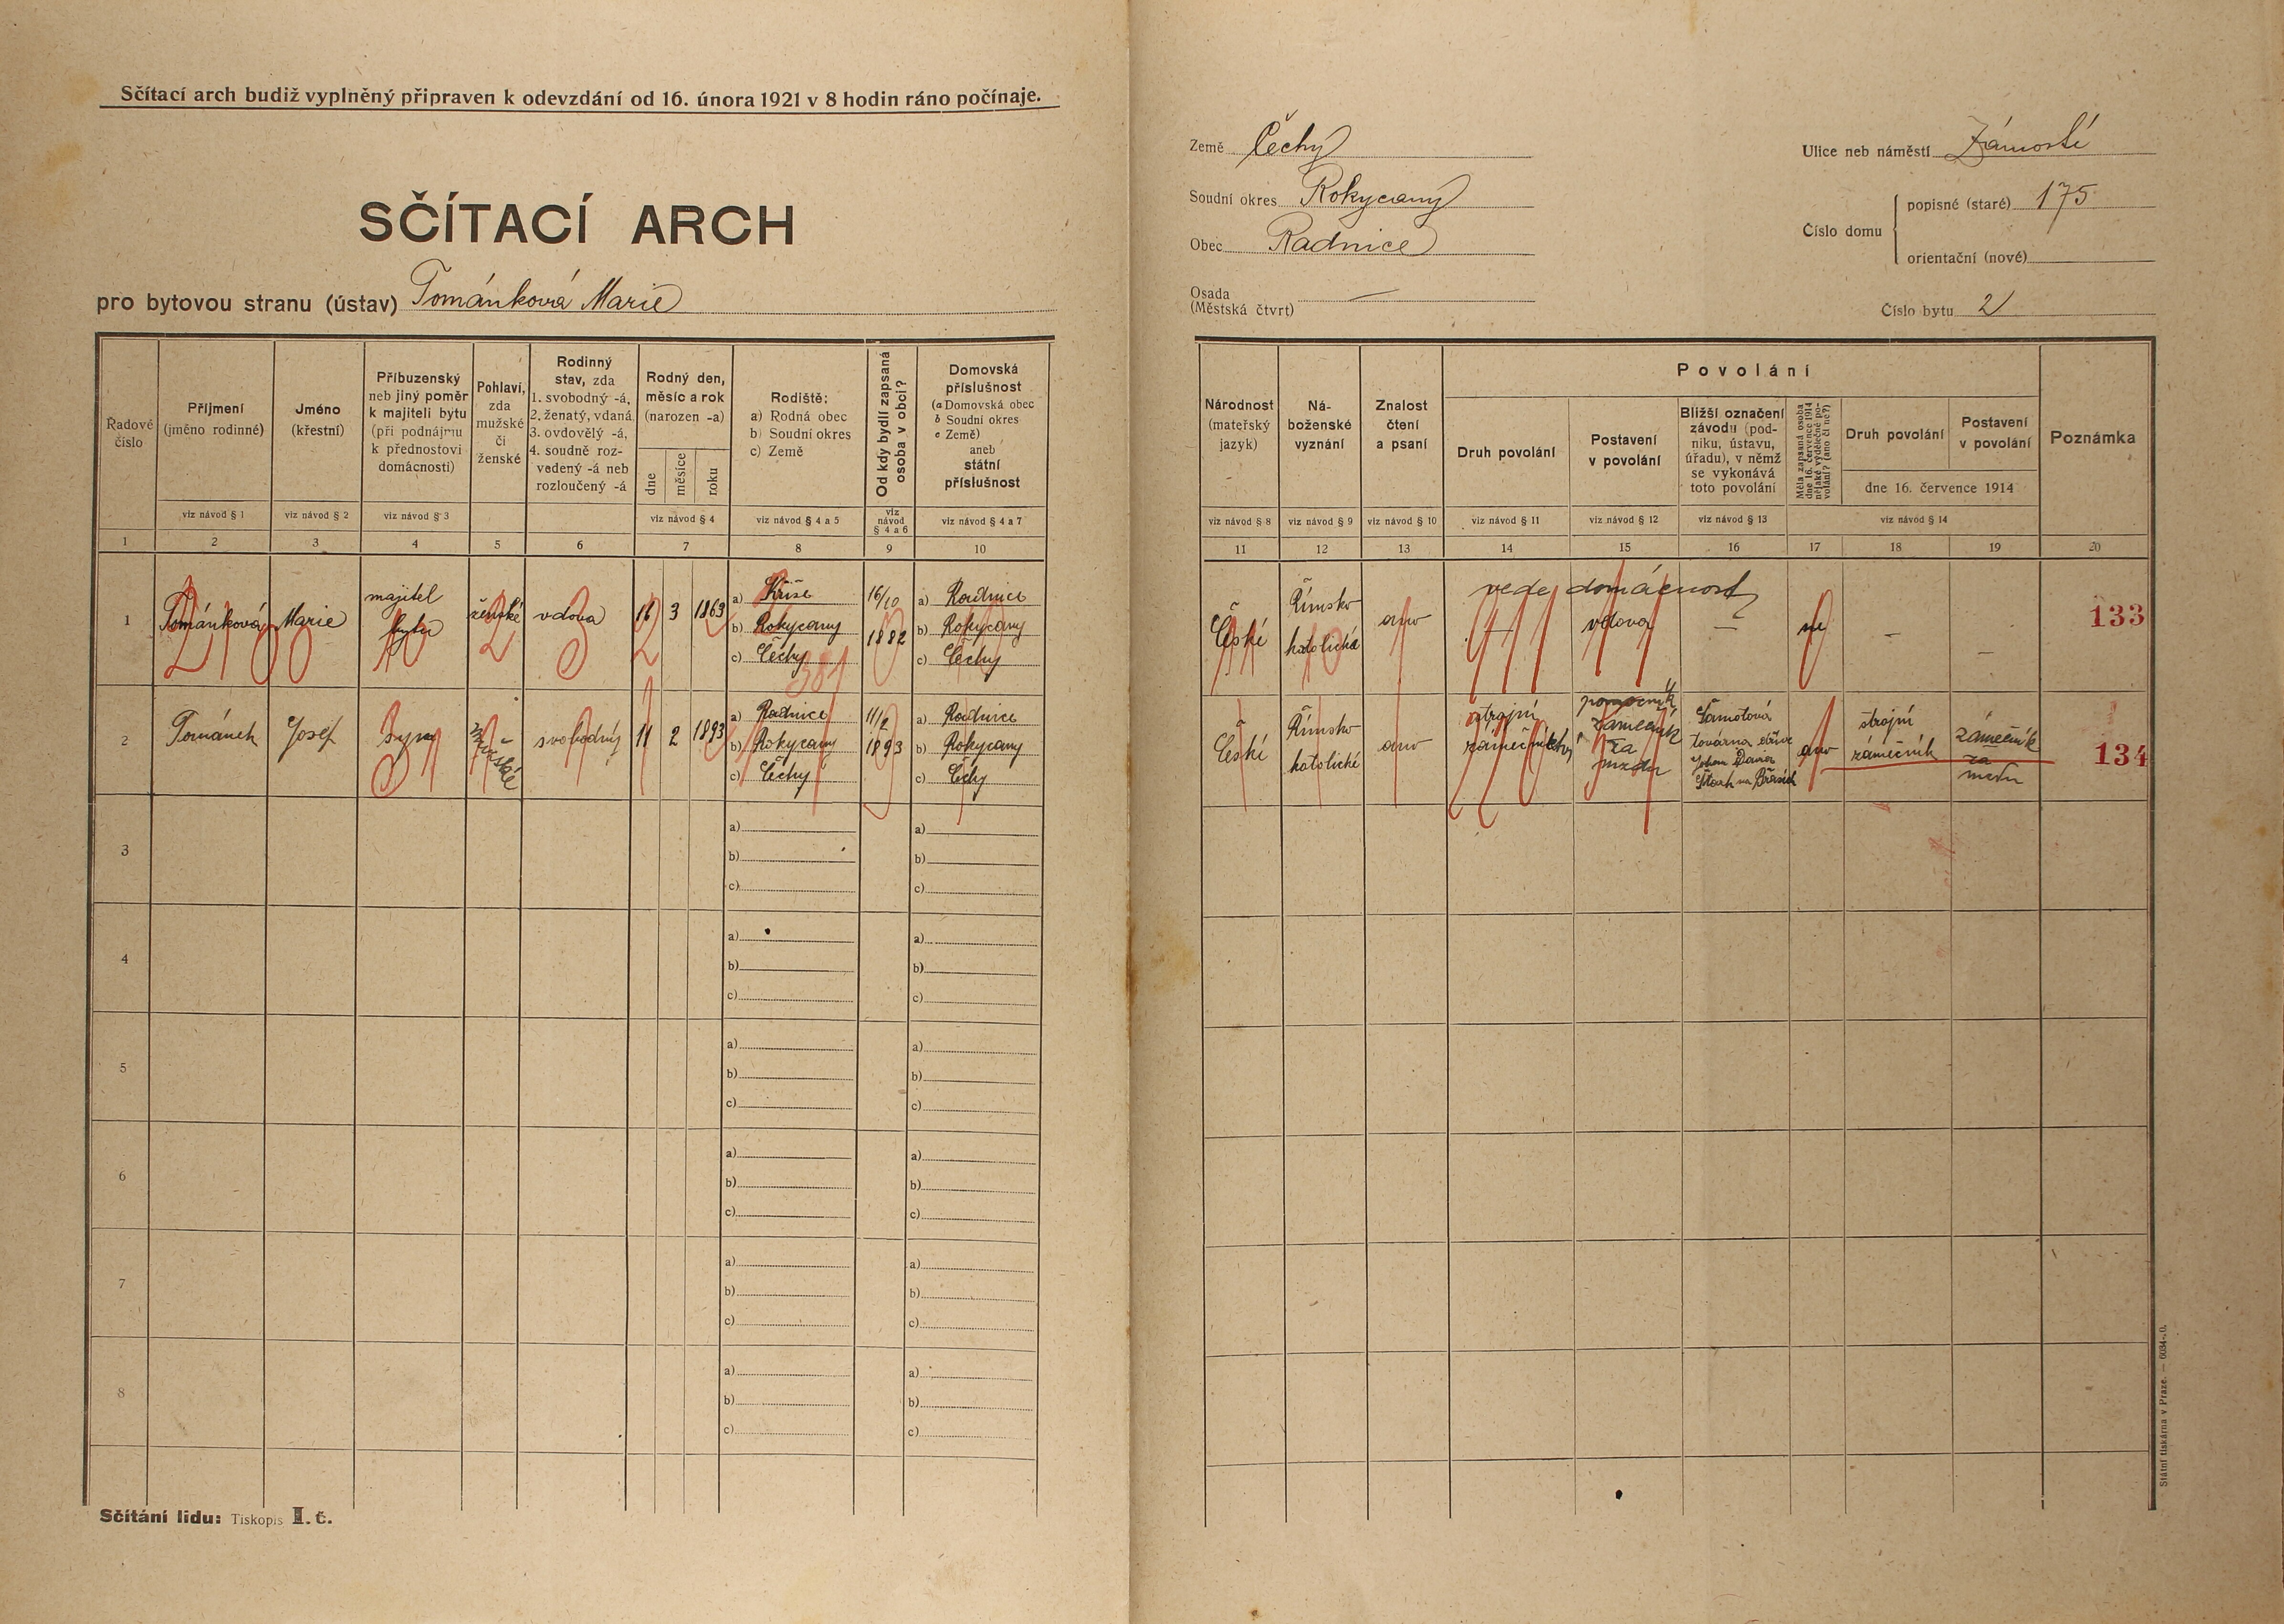 Sčítací arch budiž vyplněný připraven k odevzdání od 16. února 1921 v 8 hodin ráno počínaje.
SČÍTACÍ ARCH
pro bytovou stranu (ústav) Tománková Marie
Země Čechy
Soudní okres Rokycany
Obec Radnice
Osada
(Městská čtvrt) —
Ulice neb náměstí Zámostí
Číslo domu
popisné (staré) 175
orientační (nové)
Číslo bytu 2
Řadové
číslo
Příjmení
(jméno rodinné)
viz návod § 1
Jméno
(křestní)
viz návod § 2
Příbuzenský
neb jiný poměr
k majiteli bytu
(při podnájmu
k přednostovi
domácnosti)
viz návod § 3
Pohlaví,
zda
mužské
či
ženské
Rodinný
stav, zda
1. svobodný -á,
2. ženatý, vdaná
3. ovdovělý -á,
4. soudně roz-
vedený -á neb
rozloučený -á
Rodný den,
měsíc a rok
(narozen -a)
dne
měsíce
roku
viz návod § 4
Rodiště:
a) Rodná obec
b) Soudní okres
c) Země
viz návod § 4 a 5
Od kdy bydlí zapsaná
osoba v obci?
viz
návod
§ 4 a 6
Domovská
příslušnost
(a Domovská obec
b Soudní okres
c Země)
aneb
státní
příslušnost
viz návod § 4 a 7
1 2 3 4 5 6 7 8 9 10
Národnost
(mateřský
jazyk)
viz návod § 8
Ná-
boženské
vyznání
viz návod § 9
Znalost
čtení
a psaní
viz návod § 10
Povolání
Druh povolání
viz návod § 11
Postavení
v povolání
viz návod § 12
Bližší označení
závodu (pod-
niku, ústavu,
úřadu), v němž
se vykonává
toto povolání
viz návod § 13
Měla zapsaná osoba
dne 16. července 1914
nějaké výdělečné po-
volání? (ano či ne?)
Druh povolání
Postavení
v povolání
dne 16. července 1914
viz návod § 14
Poznámka
11 12 13 14 15 16 17 18 19 20
1
Tománková
Marie
majitel
bytu
ženské
vdova
16 3 1863
a) Kříše
b) Rokycany
c) Čechy
16/10
1882
a) Radnice
b) Rokycany
c) Čechy
České
Římsko
katolické
ano
vede domácnost
—
vdova
—
ne
—
—
133
2
Tománek
Josef
syn
mužské
svobodný
11 2 1893
a) Radnice
b) Rokycany
c) Čechy
11/2
1893
a) Radnice
b) Rokycany
c) Čechy
České
Římsko
katolické
ano
strojní
zámečnictví
pomocník
zámečník
za
mzdu
Šamotová
továrna dříve
Johan David
Starck na Břasích
ano
strojní
zámečník
zámečník
za
mzdu
134
3
a)
b)
c)
a)
b)
c)
4
a)
b)
c)
a)
b)
c)
5
a)
b)
c)
a)
b)
c)
6
a)
b)
c)
a)
b)
c)
7
a)
b)
c)
a)
b)
c)
8
a)
b)
c)
a)
b)
c)
Sčítání lidu: Tiskopis I. č.